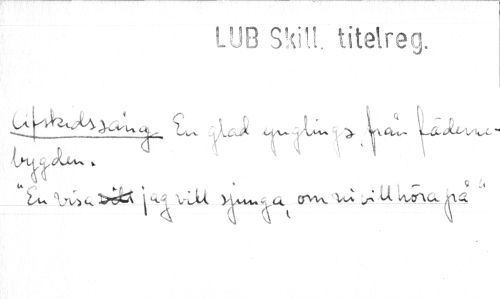 LUB Skill. titelreg.
Afskedssång En glad ynglings, från fäderne-
bygden.
"En visa vill jag vill sjunga, om ni vill höra på"